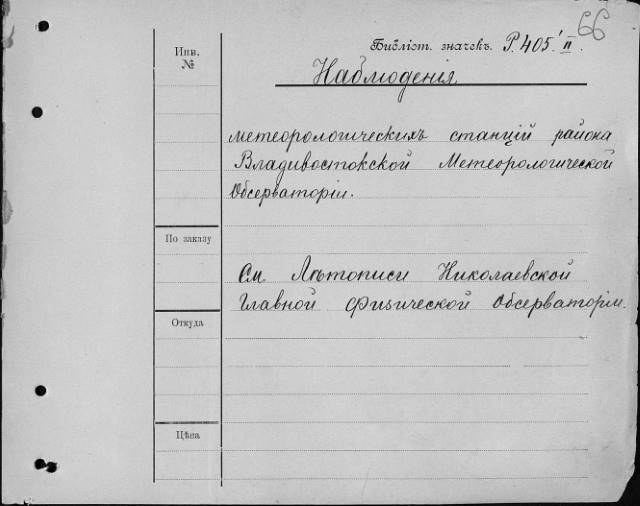 66
Инв. №
Библіот. значекъ. Р.405.'II.
Наблюденія
метеорологическихъ станцій района
Владивостокской Метеорологической
Обсерваторіи.
По заказу
См Лѣтописи Николаевской
Главной Физической Обсерваторіи.
Откуда
Цѣна